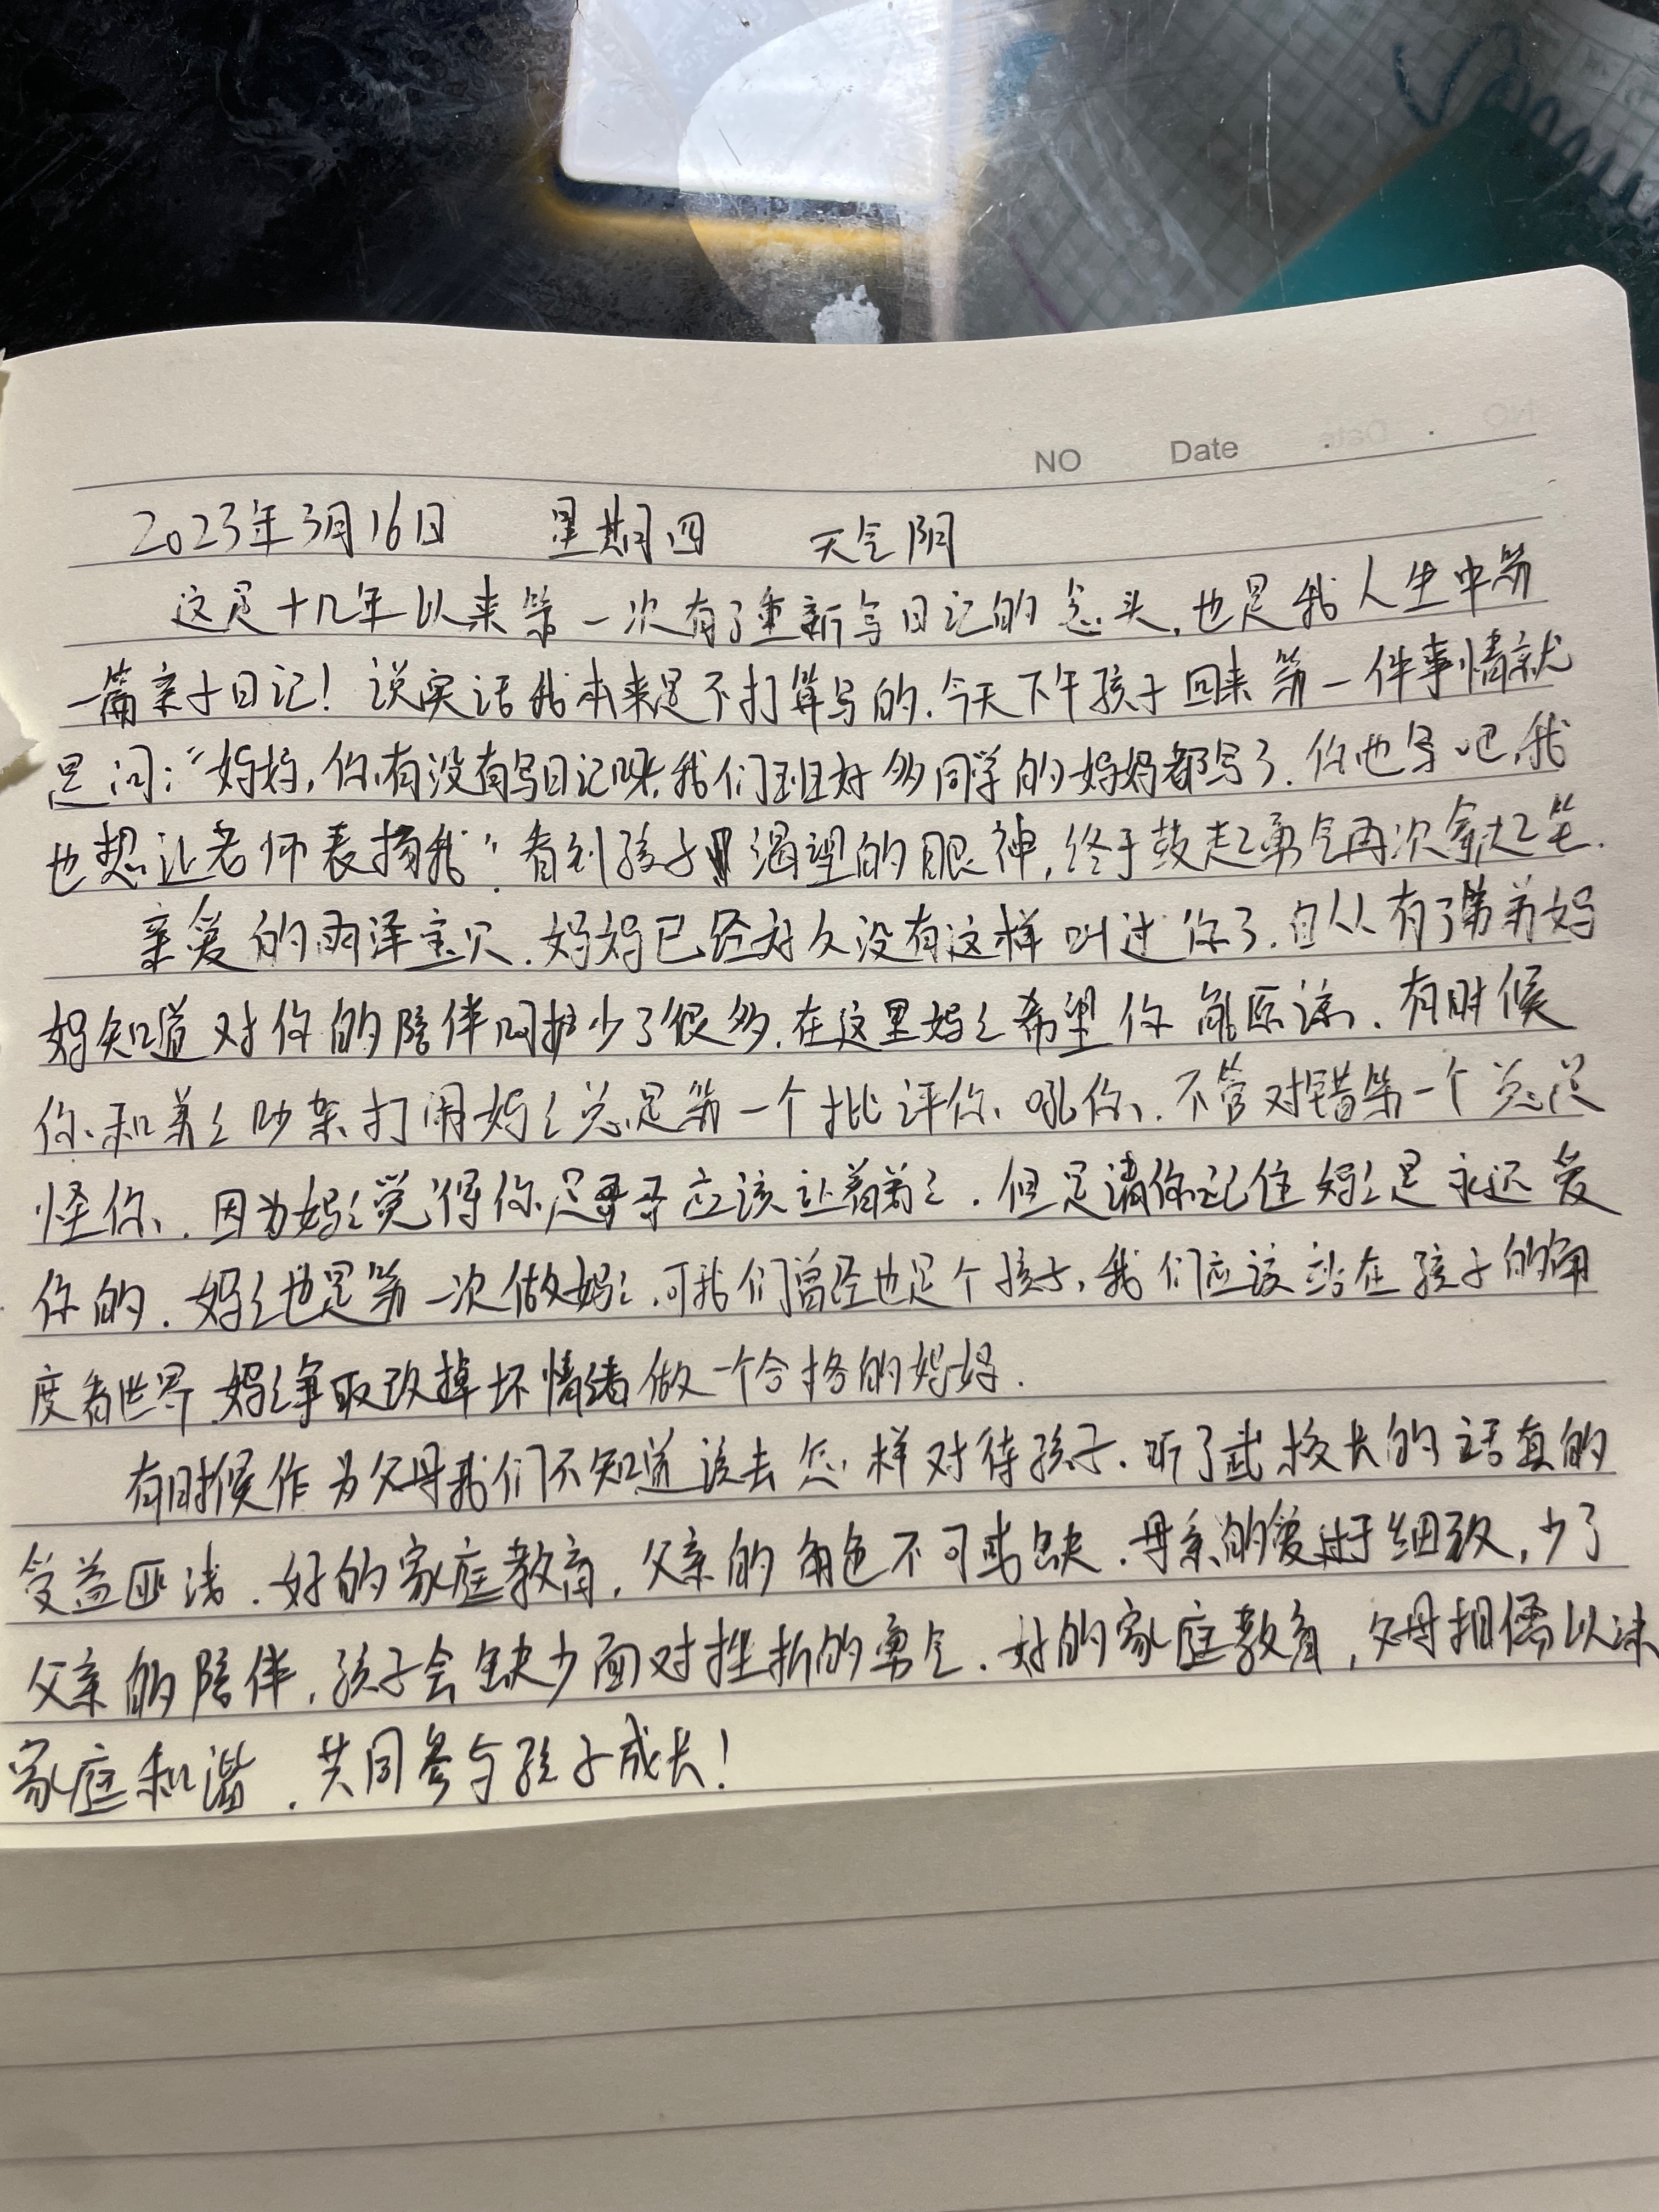 NO Date
2023年3月16日 星期四 天气阴
这是十几年以来第一次有了重新写日记的念头,也是我人生中第
一篇亲子日记!说实话我本来是不打算写的.今天下午孩子回来第一件事情就
是问:“妈妈,你有没有写日记呀,我们班好多同学的妈妈都写了.你也写吧,我
也想让老师表扬我”.看到孩子渴望的眼神,终于鼓起勇气再次拿起笔.
亲爱的雨泽宝贝.妈妈已经好久没有这样叫过你了.自从有了弟弟妈
妈知道对你的陪伴呵护少了很多.在这里妈々希望你能原谅.有时候
你和弟々吵架打闹妈々总是第一个批评你、吼你、.不管对错第一个总是
怪你、.因为妈々觉得你是哥哥应该让着弟々.但是请你记住妈々是永远爱
你的.妈々也是第一次做妈々.可我们曾经也是个孩子,我们应该站在孩子的角
度看世界.妈々争取改掉坏情绪做一个合格的妈妈.
有时候作为父母我们不知道该去怎样对待孩子.听了武校长的话真的
受益匪浅.好的家庭教育,父亲的角色不可或缺.母亲的爱过于细致,少了
父亲的陪伴,孩子会缺少面对挫折的勇气.好的家庭教育,父母相儒以沫
家庭和谐.共同参与孩子成长!